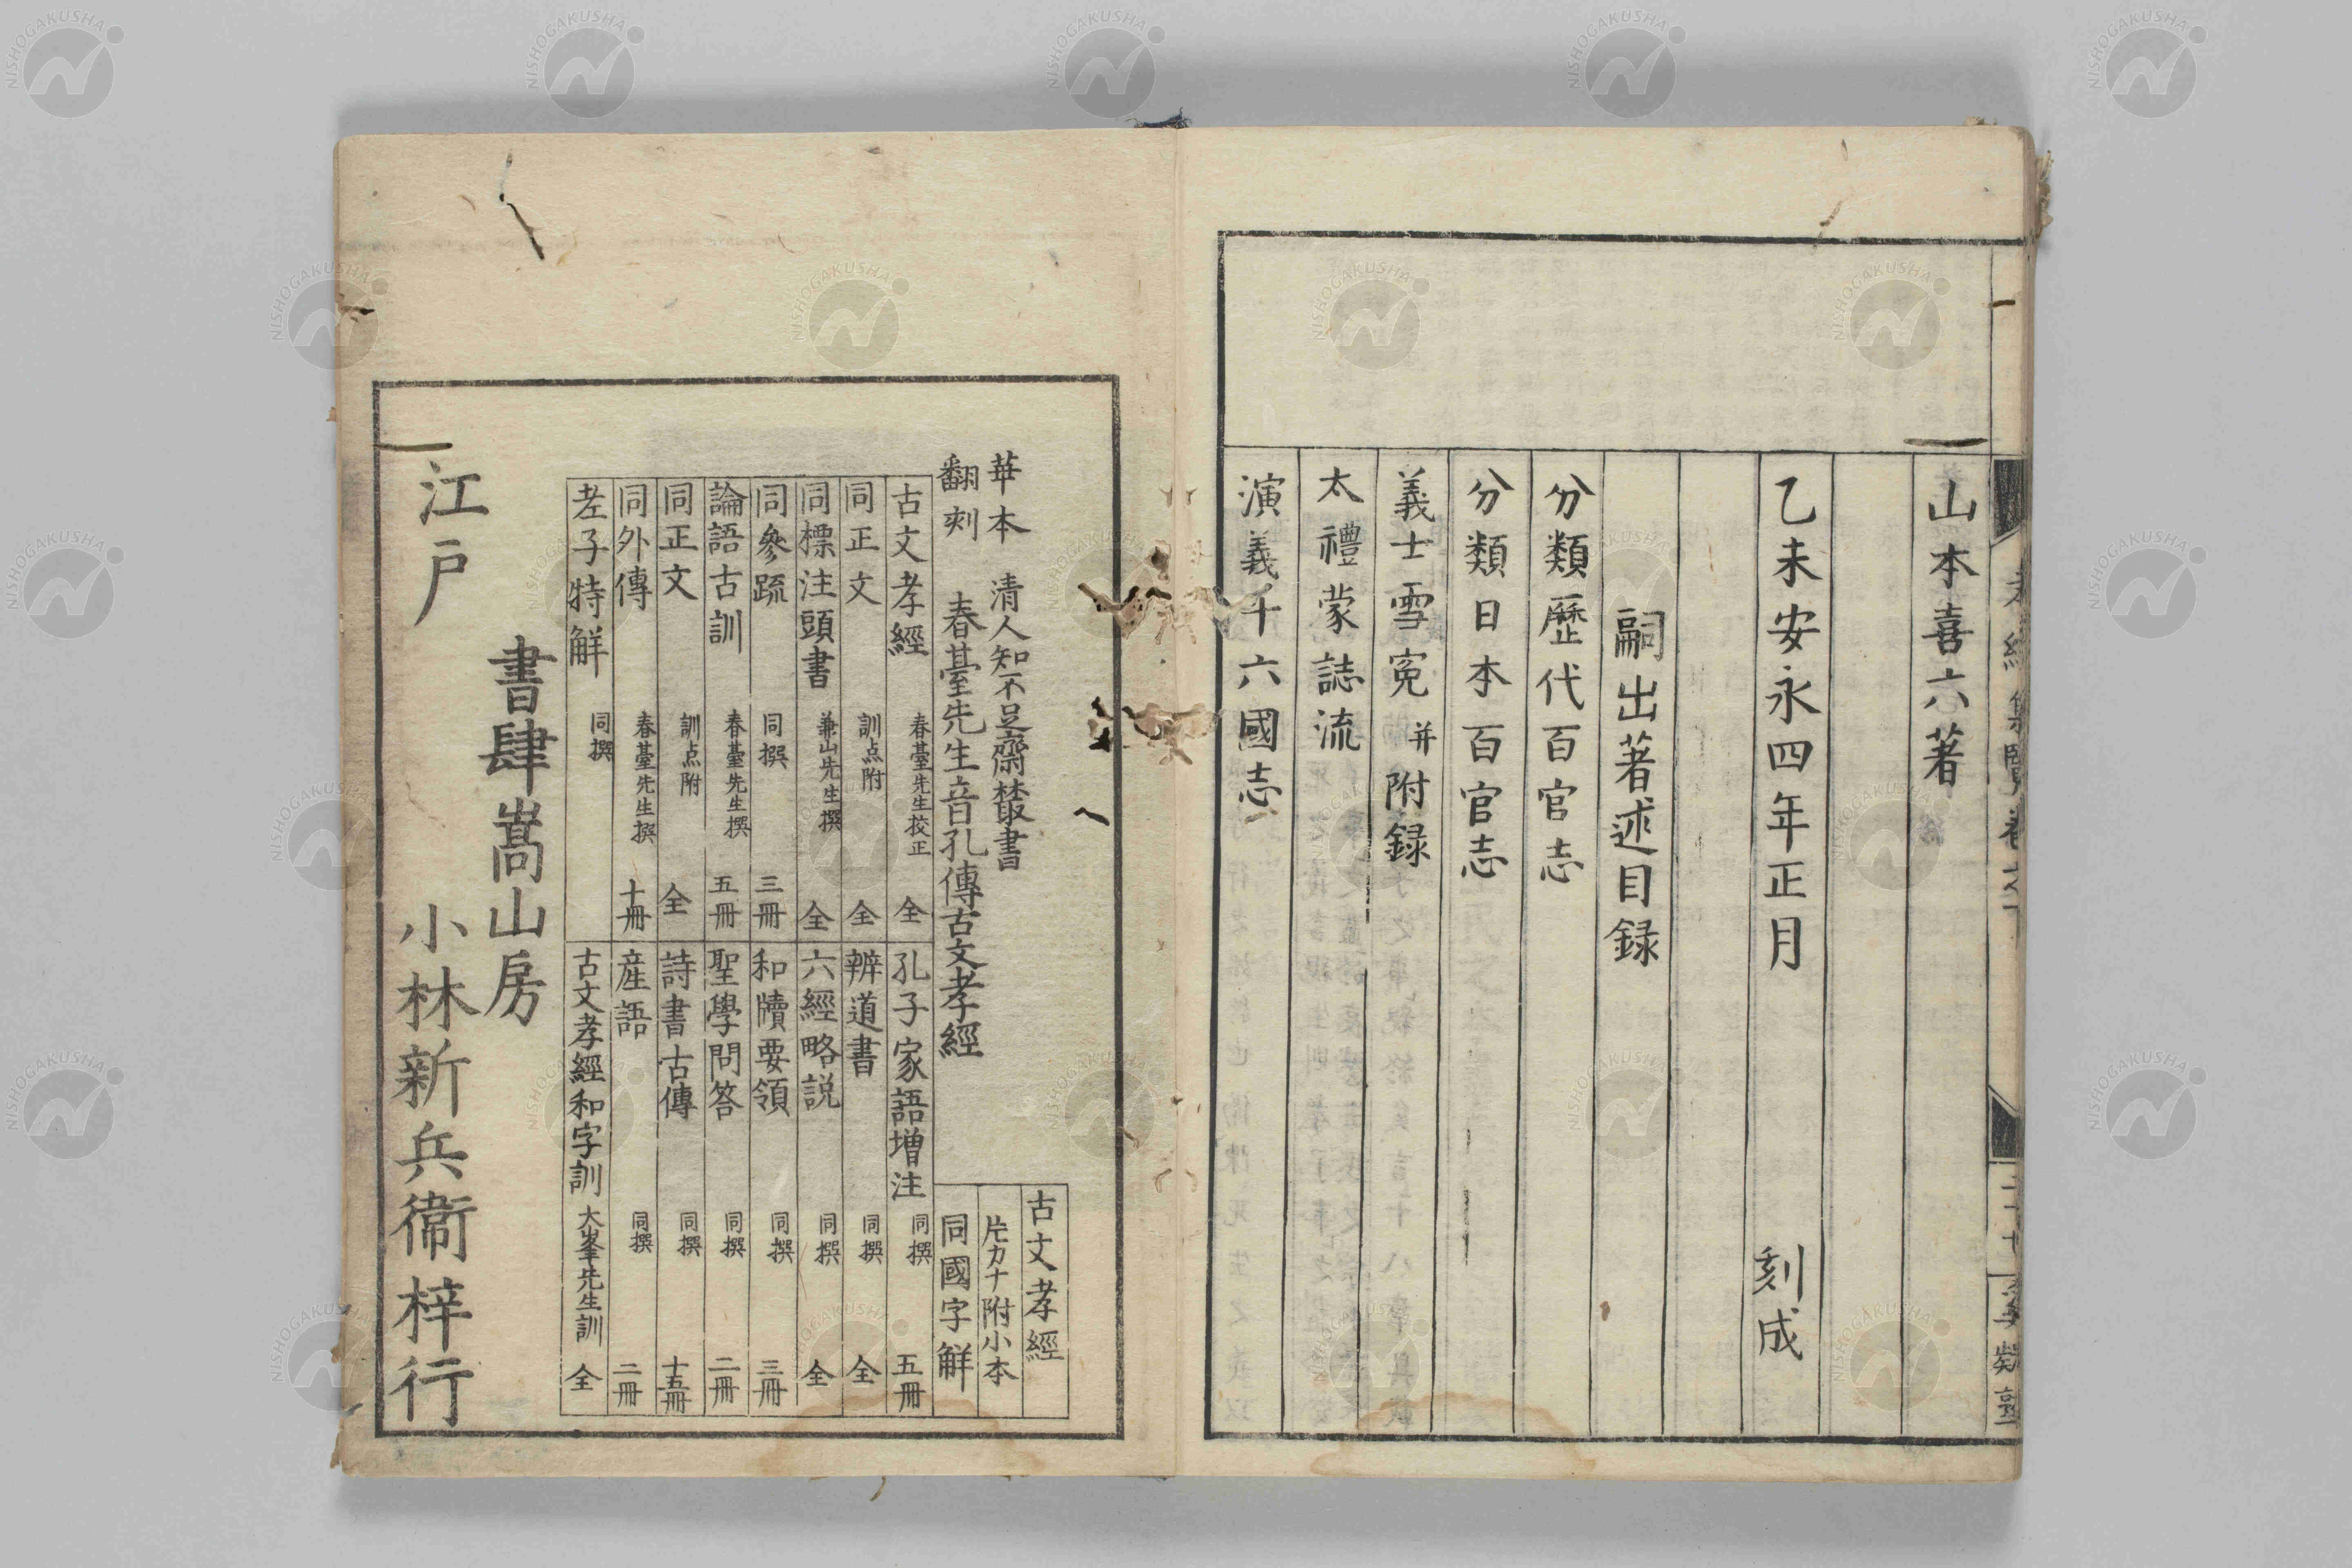 山本喜六著
乙未安永四年正月 刻成
嗣出著述目録
分類歷代百官志
分類日本百官志
義士雪冤 并附録
太禮蒙誌流
演義千六國志
華本
翻刻
清人知不足齋叢書
春臺先生音孔傳古文孝經
古文孝經
片カナ附小本
同國字解
古文孝經 春臺先生挍正 全
同正文 訓点附 全
同標注頭書 兼山先生撰 全
同參疏 同撰 三冊
論語古訓 春臺先生撰 五冊
同正文 訓点附 全
同外傳 春臺先生撰 十冊
老子特解 同撰
孔子家語増注 同撰 五冊
辨道書 同撰 全
六經略説 同撰 全
和牘要領 同撰 三冊
聖學問答 同撰 二冊
詩書古傳 同撰 十五冊
産語 同撰 二冊
古文孝經和字訓 大峯先生訓 全
書肆嵩山房
江戸 小林新兵衞梓行
NISHOGAKUSHA